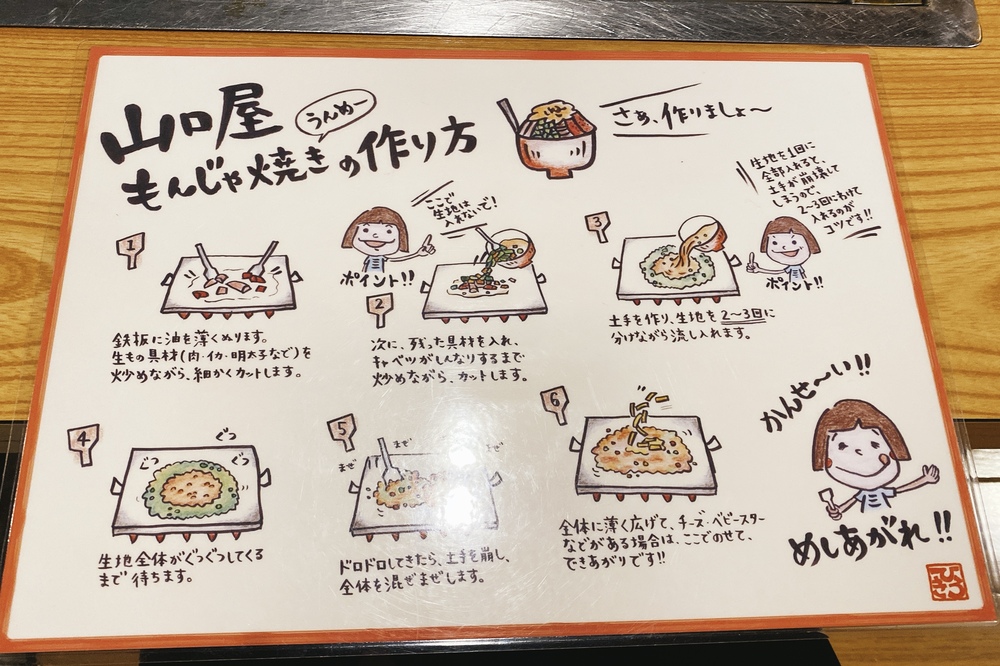 山口屋
うんめー
もんじゃ焼きの作り方
さぁ、作りましょ〜
1
鉄板に油を薄くぬります。
生もの具材(肉・イカ・明太子など)を
炒めながら、細かくカットします。
ここで
生地は
入れないで!
ポイント!!
2
次に、残った具材を入れ、
キャベツがしんなりするまで
炒めながら、カットします。
3
生地を1回に
全部入れると、
土手が崩壊して
しまうので、
2〜3回にわけて
入れるのが
コツです!!
ポイント!!
土手を作り、生地を2〜3回に
分けながら流し入れます。
4
ぐつ
ぐつ
ぐつ
生地全体がぐつぐつしてくる
まで待ちます。
5
まぜ
まぜ
まぜ
ドロドロしてきたら、土手を崩し、
全体を混ぜまぜします。
6
全体に薄く広げて、チーズ・ベビースター
などがある場合は、ここでのせて、
できあがりです!!
かんせ〜い!!
めしあがれ!!